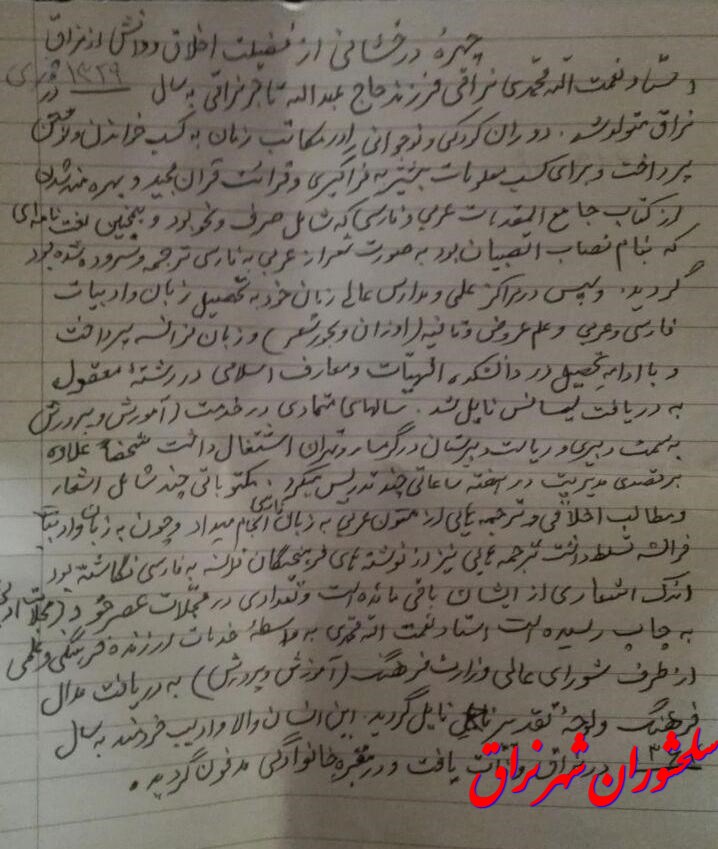 چهرهٔ درخشانی از فضیلت اخلاق و دانش از نراق
استاد نعمت اله محمدی نراقی فرزند حاج عبداله تاجر نراقی به سال ۱۳۲۹ قمری در
نراق متولد شد. دوران کودکی و نوجوانی را در مکاتب زمان به کسب خواندن و نوشتن
پرداخت و برای کسب معلومات بیشتر به فراگیری و قرائت قرآن مجید و بهره مند شدن
از کتاب جامع المقدمات عربی و فارسی که شامل صرف و نحو بود و همچنین لغت نامه ای
که بنام نصاب الصبیان بود به صورت شعر از عربی به فارسی ترجمه و سروده شده بود
گردید. و سپس در مراکز علمی و مدارس عالی زمان خود به تحصیل زبان و ادبیات
فارسی و عربی و علم عروض و قافیه (اوزان و بحور شعر) و زبان فرانسه پرداخت
و با ادامه تحصیل در دانشکده الهیات و معارف اسلامی در رشتهٔ معقول
به دریافت لیسانس نایل شد. سالهای متمادی در خدمت (آموزش و پرورش
به سمت دبیری و ریاست دبیرستان در گرمسار و تهران اشتغال داشت شخصاً علاوه
بر تصدی مدیریت در هفته ساعاتی چند تدریس میکرد. مکتوباتی چند شامل اشعار
و مطالب اخلاقی و ترجمه هایی از متون عربی به زبان فارسی انجام میداد و چون به زبان و ادبیات
فرانسه تسلط داشت ترجمه هایی نیز از نوشته های فرهیختگان فرانسه به فارسی نگاشته بود
اندک اشعاری از ایشان باقی مانده است و تعدادی در مجلات عصر خود (مجلات ادبی
به چاپ رسیده است استاد نعمت اله محمدی به واسطهٔ خدمات ارزنده فرهنگی و علمی
از طرف شورای عالی وزارت فرهنگ (آموزش و پرورش) به دریافت مدال
فرهنگ و لوحهٔ تقدیر نایل گردید. این انسان والا و ادیب فرزانه به سال
در نراق وفات یافت و در مقبره خانوادگی مدفون گردید.
سلحشوران شهر نراق